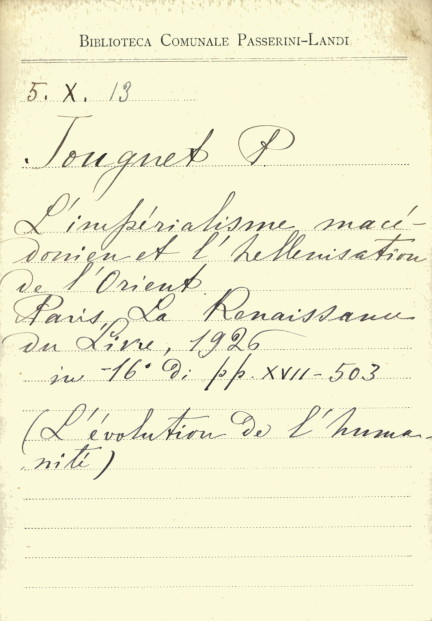 BIBLIOTECA COMUNALE PASSERINI-LANDI
5. X. 13
Jouguet P.
L'impérialisme macé-
donien et l'hellenisation
de l'Orient
Paris, La Renaissance
du Livre, 1926
in -16° di pp. XVII-503
(L'évolution de l'huma-
nité)